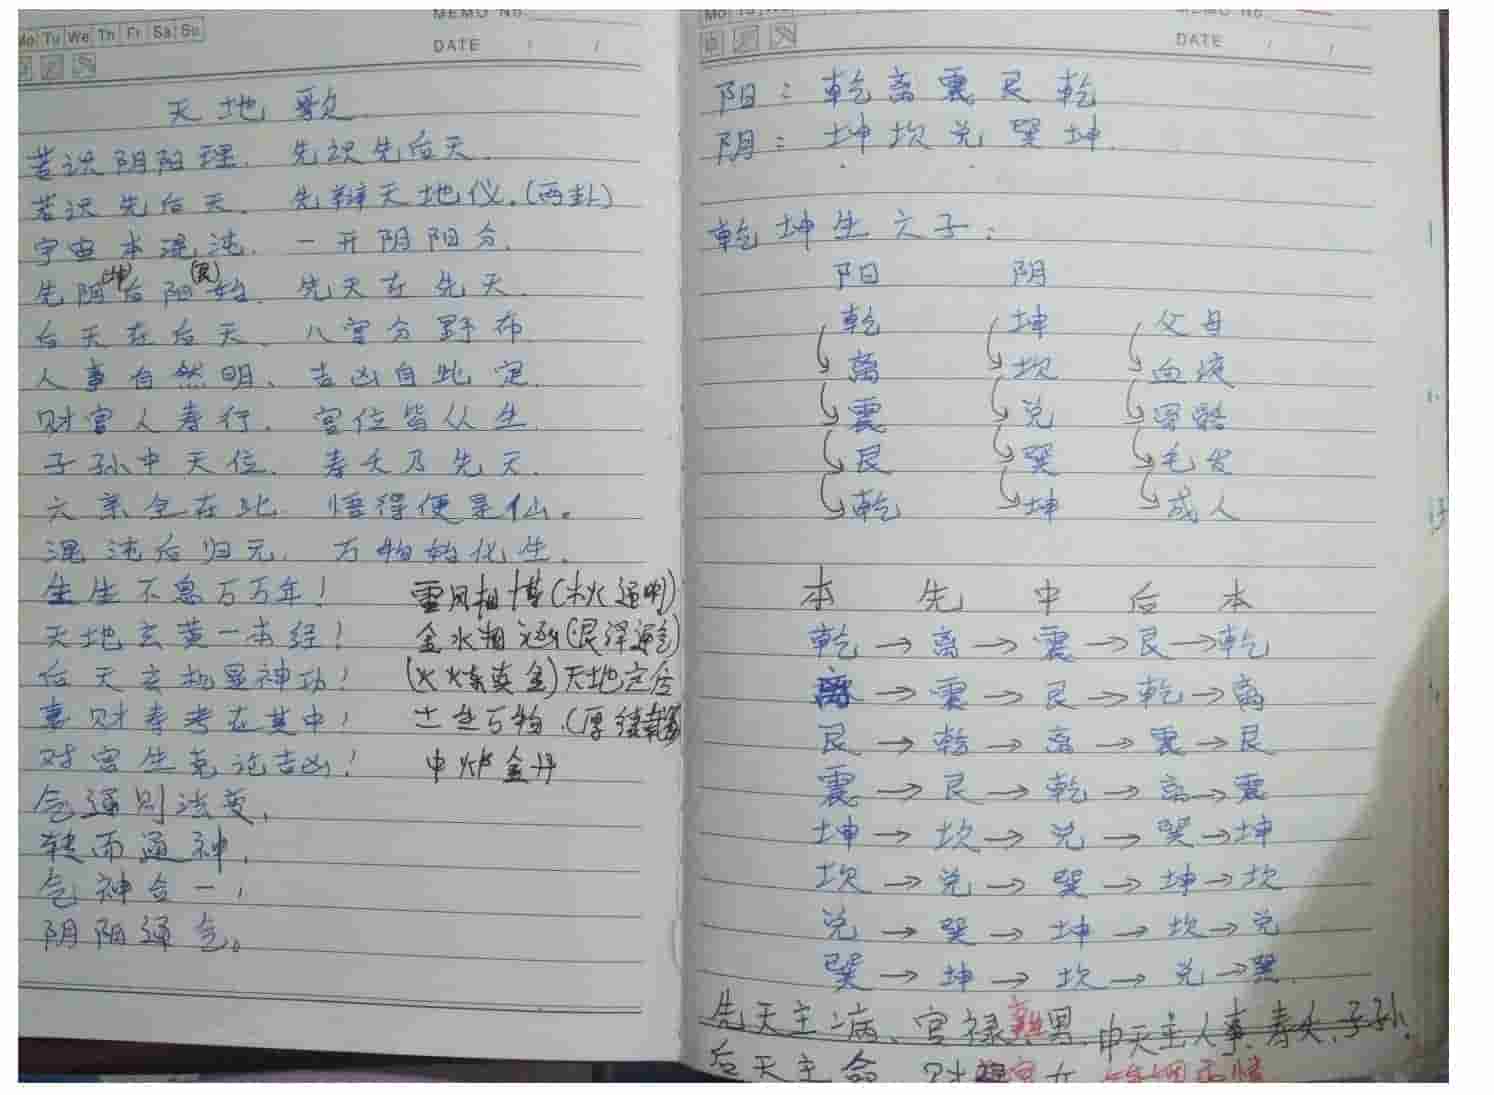 MEMO No.
Mo Tu We Th Fr Sa Su
DATE / /
天地歌
若识阴阳理、先识先后天、
若识先后天、先辩天地仪。(两卦)
宇宙本混沌、一开阴阳分、
(坤) (艮)
先阴后阳始、先天在先天、
后天在后天、八宫分野布
人事自然明、吉凶自此定、
财官人寿行、宫位皆从生、
子孙中天位、寿夭乃先天、
六亲全在此 悟得便是仙。
混沌后归元、万物始化生、
生生不息万万年! 雷风相搏(木火通明)
天地玄黄一本经! 金水相涵(艮泽通气)
后天玄机显神功! (火炼真金)天地定位
事财寿考在其中! 土生万物(厚德载物
对宫生克论吉凶! 中炉金丹
气通则法变,
转而通神,
气神合一,
阴阳通气。
MEMO No.
DATE / /
阳:乾离震艮乾
阴:坤坎兑巽坤
乾坤生六子:
阳 阴
乾 坤 父母
离 坎 血液
震 兑 骨骼
艮 巽 毛发
乾 坤 成人
本 先 中 后 本
乾→离→震→艮→乾
离→震→艮→乾→离
艮→乾→离→震→艮
震→艮→乾→离→震
坤→坎→兑→巽→坤
坎→兑→巽→坤→坎
兑→巽→坤→坎→兑
巽→坤→坎→兑→巽
先天主病、官禄 男、中天主人事、寿夭、子孙、
后天主命 财 女